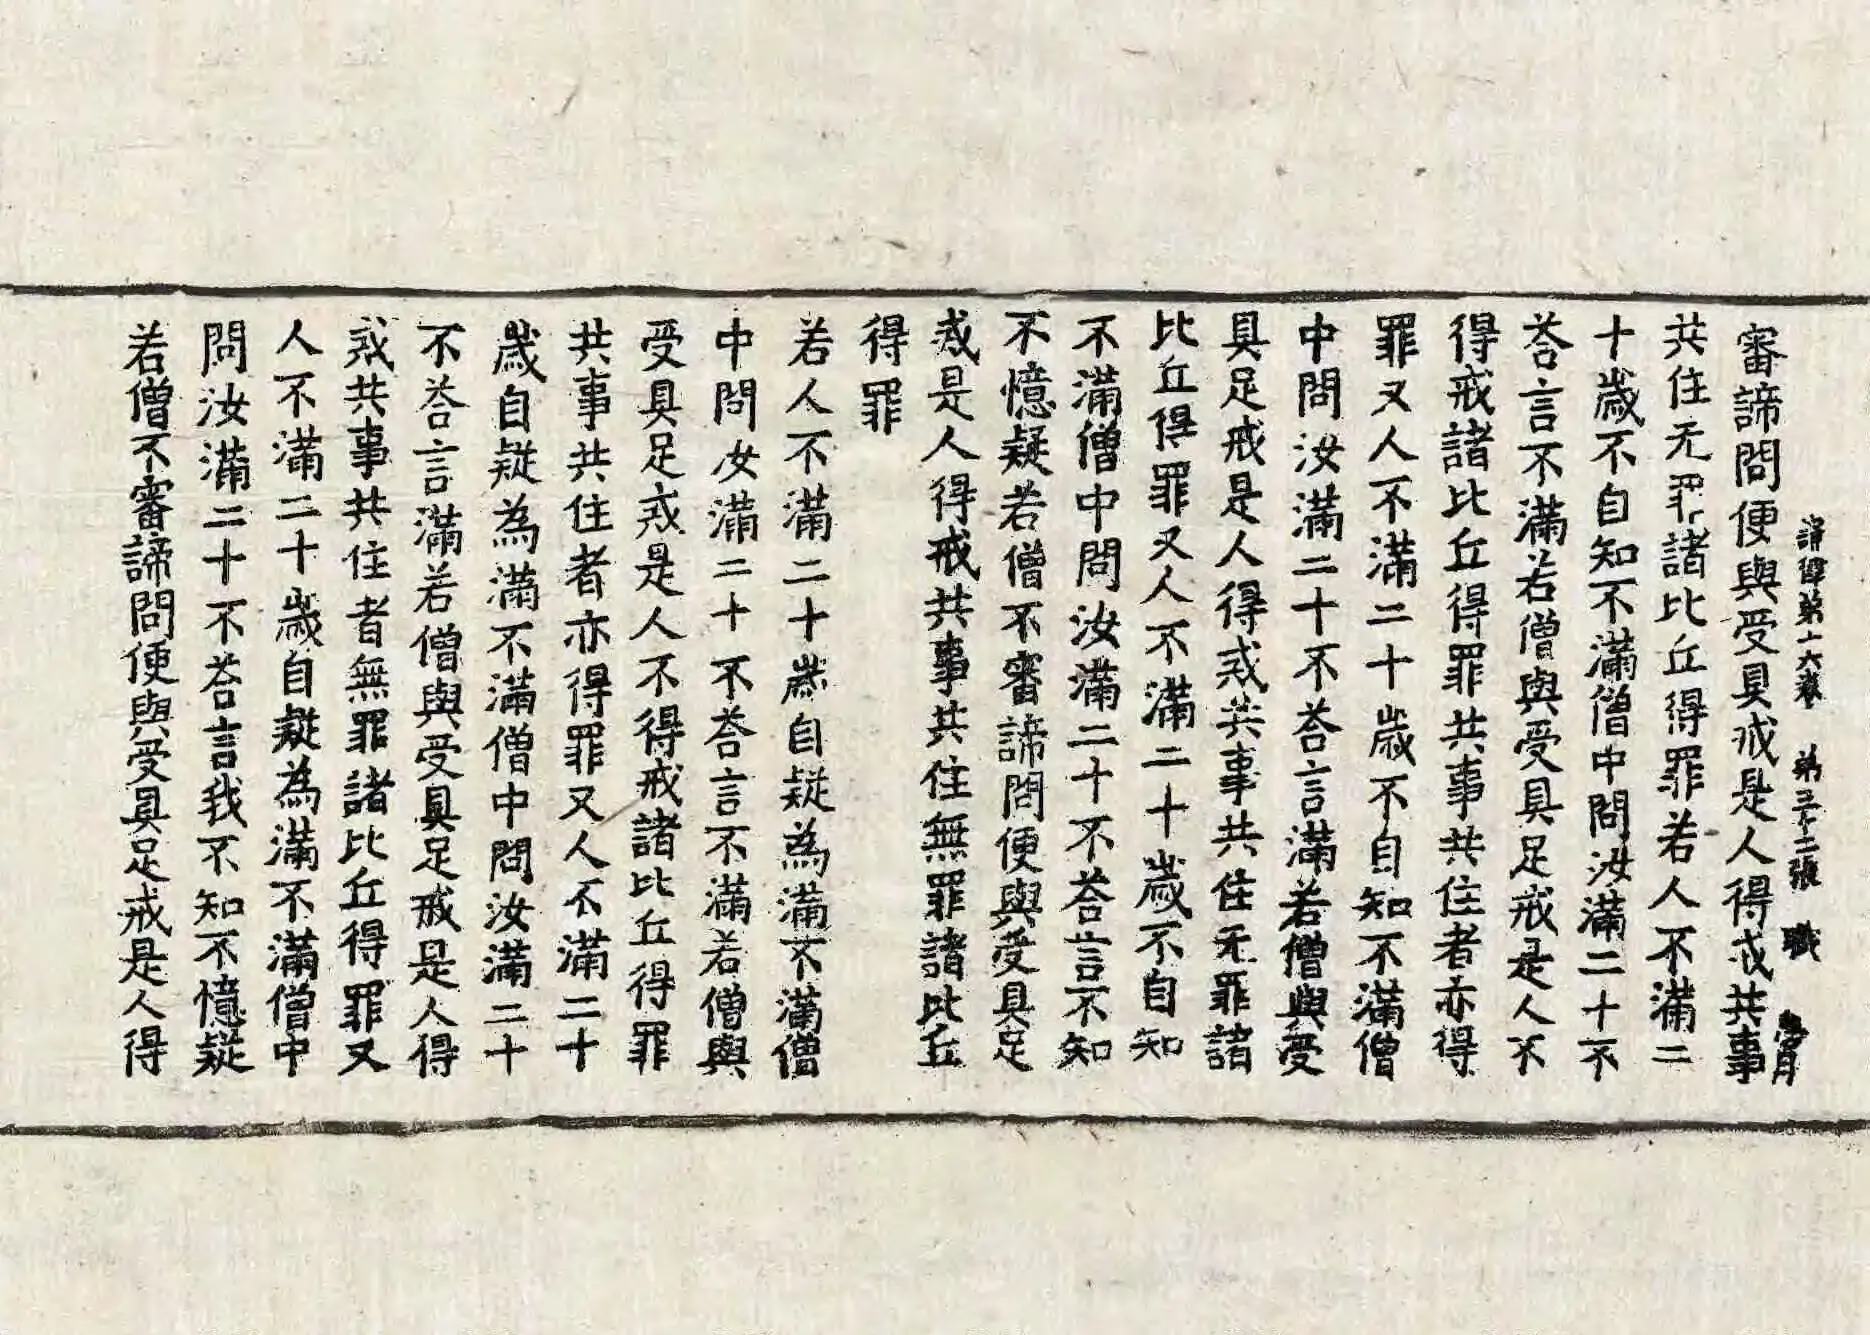 誦律第十六卷 第三十二張 職
審諦問便與受具戒是人得戒共事
共住无罪諸比丘得罪若人不滿二
十歲不自知不滿僧中問汝滿二十不
荅言不滿若僧與受具足戒是人不
得戒諸比丘得罪共事共住者亦得
罪又人不滿二十歲不自知不滿僧
中問汝滿二十不荅言滿若僧與受
具足戒是人得戒共事共住无罪諸
比丘得罪又人不滿二十歲不自知
不滿僧中問汝滿二十不荅言不知
不憶疑若僧不審諦問便與受具足
戒是人得戒共事共住無罪諸比丘
得罪
若人不滿二十歲自疑為滿不滿僧
中問汝滿二十不荅言不滿若僧與
受具足戒是人不得戒諸比丘得罪
共事共住者亦得罪又人不滿二十
歲自疑為滿不滿僧中問汝滿二十
不荅言滿若僧與受具足戒是人得
戒共事共住者無罪諸比丘得罪又
人不滿二十歲自疑為滿不滿僧中
問汝滿二十不荅言我不知不憶疑
若僧不審諦問便與受具足戒是人得